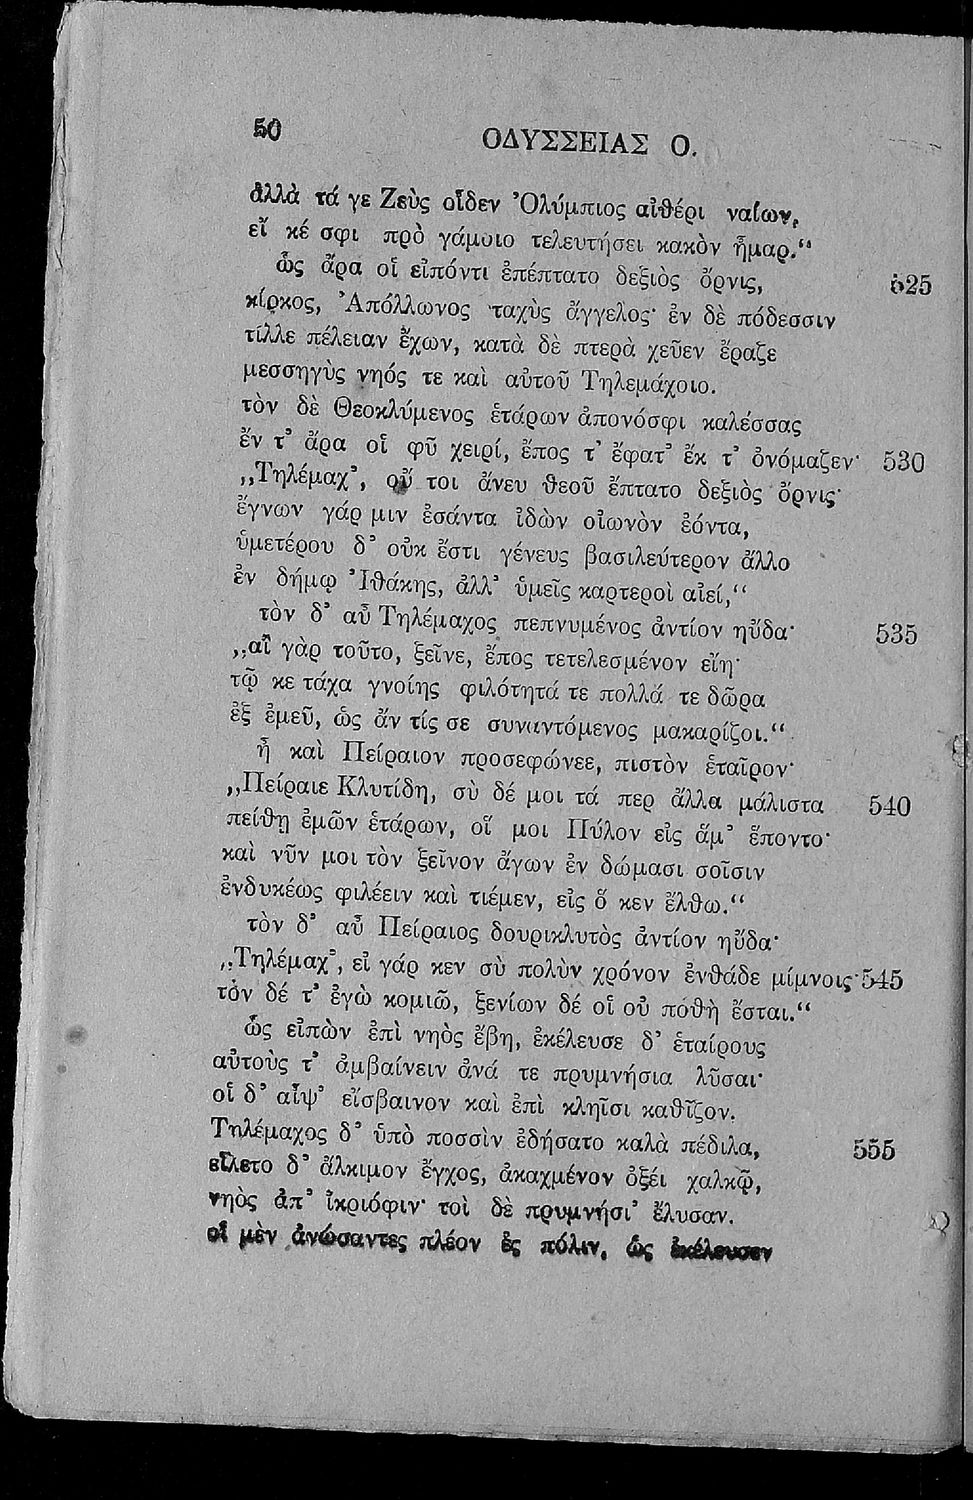 50
ΟΔΥΣΣΕΙΑΣ Ο.
ἀλλὰ τά γε Ζεὺς οἶδεν Ὀλύμπιος αἰθέρι ναίων,
εἴ κέ σφι πρὸ γάμοιο τελευτήσει κακὸν ἦμαρ.“
ὣς ἄρα οἱ εἰπόντι ἐπέπτατο δεξιὸς ὄρνις, 525
κίρκος, Ἀπόλλωνος ταχὺς ἄγγελος· ἐν δὲ πόδεσσιν
τίλλε πέλειαν ἔχων, κατὰ δὲ πτερὰ χεῦεν ἔραζε
μεσσηγὺς νηός τε καὶ αὐτοῦ Τηλεμάχοιο.
τὸν δὲ Θεοκλύμενος ἑτάρων ἀπονόσφι καλέσσας
ἔν τ’ ἄρα οἱ φῦ χειρί, ἔπος τ’ ἔφατ’ ἔκ τ’ ὀνόμαζεν· 530
„Τηλέμαχ’, οὔ τοι ἄνευ θεοῦ ἔπτατο δεξιὸς ὄρνις·
ἔγνων γάρ μιν ἐσάντα ἰδὼν οἰωνὸν ἐόντα,
ὑμετέρου δ’ οὐκ ἔστι γένευς βασιλεύτερον ἄλλο
ἐν δήμῳ Ἰθάκης, ἀλλ’ ὑμεῖς καρτεροὶ αἰεί,“
τὸν δ’ αὖ Τηλέμαχος πεπνυμένος ἀντίον ηὔδα· 535
„αἲ γὰρ τοῦτο, ξεῖνε, ἔπος τετελεσμένον εἴη·
τῷ κε τάχα γνοίης φιλότητά τε πολλά τε δῶρα
ἐξ ἐμεῦ, ὡς ἄν τίς σε συναντόμενος μακαρίζοι.“
ἦ καὶ Πείραιον προσεφώνεε, πιστὸν ἑταῖρον·
„Πείραιε Κλυτίδη, σὺ δέ μοι τά περ ἄλλα μάλιστα 540
πείθῃ ἐμῶν ἑτάρων, οἵ μοι Πύλον εἰς ἅμ’ ἕποντο·
καὶ νῦν μοι τὸν ξεῖνον ἄγων ἐν δώμασι σοῖσιν
ἐνδυκέως φιλέειν καὶ τιέμεν, εἰς ὅ κεν ἔλθω.“
τὸν δ’ αὖ Πείραιος δουρικλυτὸς ἀντίον ηὔδα·
„Τηλέμαχ’, εἰ γάρ κεν σὺ πολὺν χρόνον ἐνθάδε μίμνοις· 545
τόν δέ τ’ ἐγὼ κομιῶ, ξενίων δέ οἱ οὐ ποθὴ ἔσται.“
ὣς εἰπὼν ἐπὶ νηὸς ἔβη, ἐκέλευσε δ’ ἑταίρους
αὐτούς τ’ ἀμβαίνειν ἀνά τε πρυμνήσια λῦσαι·
οἱ δ’ αἶψ’ εἴσβαινον καὶ ἐπὶ κληῖσι καθῖζον.
Τηλέμαχος δ’ ὑπὸ ποσσὶν ἐδήσατο καλὰ πέδιλα, 555
εἵλετο δ’ ἄλκιμον ἔγχος, ἀκαχμένον ὀξέι χαλκῷ,
νηὸς ἀπ’ ἰκριόφιν· τοὶ δὲ πρυμνήσι’ ἔλυσαν.
οἱ μὲν ἀνώσαντες πλέον ἐς πόλιν, ὡς ἐκέλευσεν